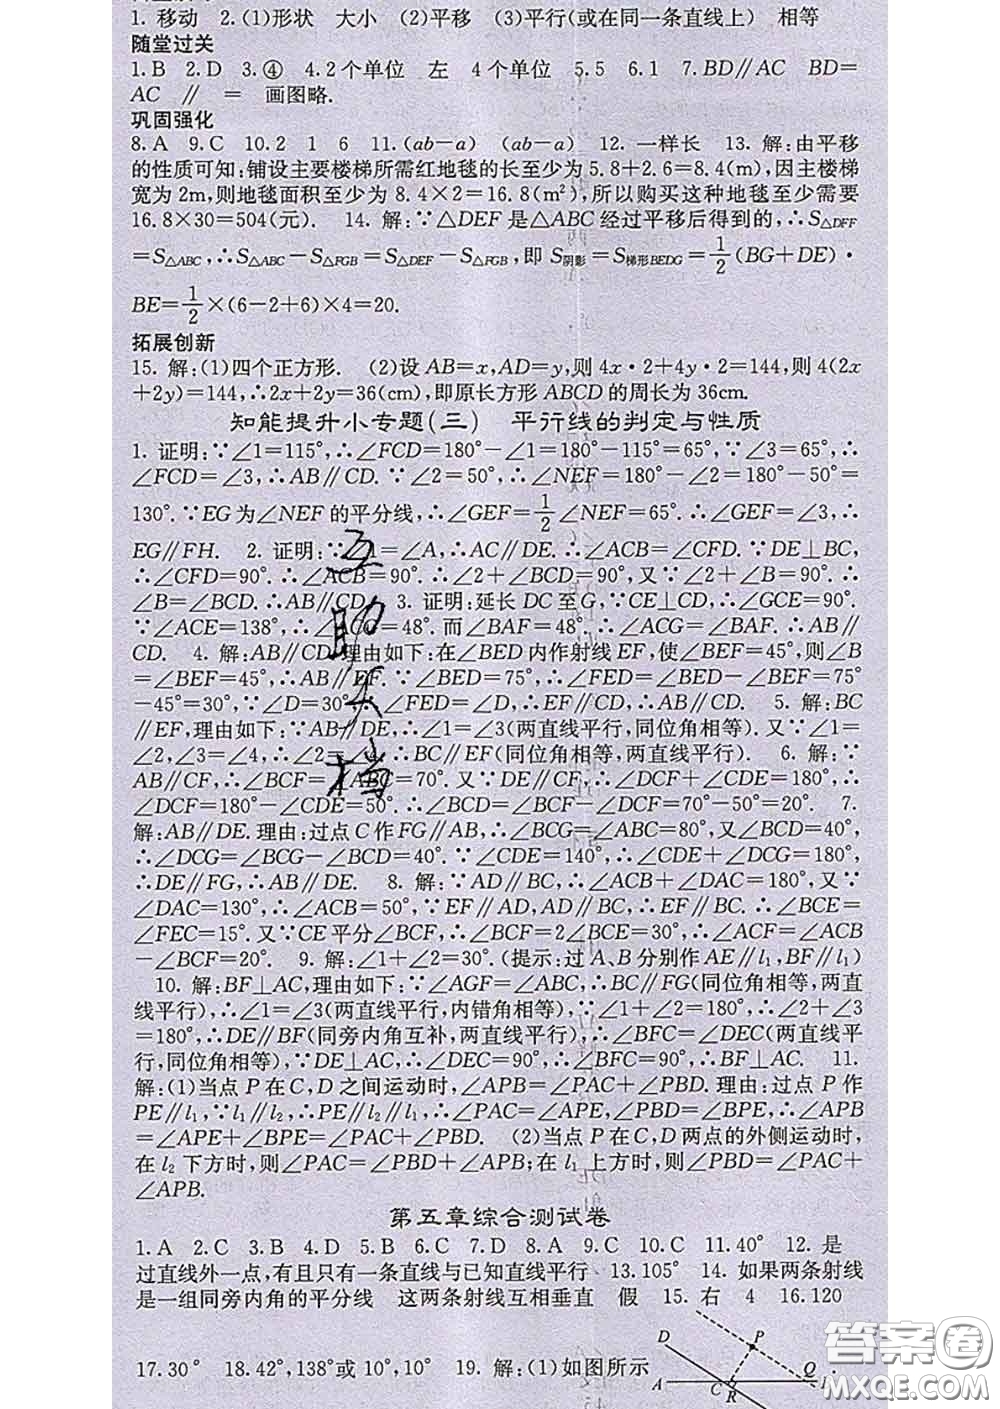 1. 移动 2.(1)形状 大小 (2)平移 (3)平行(或在同一条直线上) 相等
随堂过关
1.B 2.D 3.④ 4.2个单位 左 4个单位 5.5 6.1 7.BD∥AC BD=
AC ∥ = 画图略.
巩固强化
8.A 9.C 10.2 1 6 11.(ab-a) (ab-a) 12. 一样长 13. 解:由平移
的性质可知:铺设主要楼梯所需红地毯的长至少为5.8+2.6=8.4(m),因主楼梯
宽为2m,则地毯面积至少为8.4×2=16.8(m²),所以购买这种地毯至少需要
16.8×30=504(元). 14. 解:∵△DEF是△ABC经过平移后得到的,∴S△DFF
=S△ABC,∴S△ABC-S△FGB=S△DEF-S△FGB,即S阴影=S梯形BEDG=1/2(BG+DE)·
BE=1/2×(6-2+6)×4=20.
拓展创新
15. 解:(1)四个正方形. (2)设AB=x,AD=y,则4x·2+4y·2=144,则4(2x
+2y)=144,∴2x+2y=36(cm),即原长方形ABCD的周长为36cm.
知能提升小专题(三) 平行线的判定与性质
1. 证明:∵∠1=115°,∴∠FCD=180°-∠1=180°-115°=65°,∵∠3=65°,∴
∠FCD=∠3,∴AB∥CD. ∵∠2=50°,∴∠NEF=180°-∠2=180°-50°=
130°.∵EG为∠NEF的平分线,∴∠GEF=1/2∠NEF=65°.∴∠GEF=∠3,∴
EG∥FH. 2. 证明:∵∠1=∠A,∴AC∥DE.∴∠ACB=∠CFD.∵DE⊥BC,
∴∠CFD=90°.∴∠ACB=90°.∴∠2+∠BCD=90°,又∵∠2+∠B=90°.∴
∠B=∠BCD.∴AB∥CD. 3. 证明:延长DC至G,∵CE⊥CD,∴∠GCE=90°.
∵∠ACE=138°,∴∠ =48°.而∠BAF=48°.∴∠ACG=∠BAF.∴AB∥
CD. 4. 解:AB∥CD.理由如下:在∠BED内作射线EF,使∠BEF=45°,则∠B
=∠BEF=45°,∴AB∥EF.∵∠BED=75°,∴∠FED=∠BED-∠BEF=75°
-45°=30°,∵∠D=30°,∴∠FED=∠D,∴EF∥CD,∴AB∥CD. 5. 解:BC
∥EF,理由如下:∵AB∥DE,∴∠1=∠3(两直线平行,同位角相等).又∵∠1=
∠2,∠3=∠4,∴∠2=∠4,∴BC∥EF(同位角相等,两直线平行). 6. 解:∵
AB∥CF,∴∠BCF=∠ABC=70°.又∵DE∥CF,∴∠DCF+∠CDE=180°,∴
∠DCF=180°-∠CDE=50°.∴∠BCD=∠BCF-∠DCF=70°-50°=20°. 7.
解:AB∥DE.理由:过点C作FG∥AB,∴∠BCG=∠ABC=80°,又∠BCD=40°,
∴∠DCG=∠BCG-∠BCD=40°.∵∠CDE=140°,∴∠CDE+∠DCG=180°,
∴DE∥FG,∴AB∥DE. 8. 解:∵AD∥BC,∴∠ACB+∠DAC=180°,又∵
∠DAC=130°,∴∠ACB=50°,∵EF∥AD,AD∥BC,∴EF∥BC.∴∠BCE=
∠FEC=15°.又∵CE平分∠BCF,∴∠BCF=2∠BCE=30°,∴∠ACF=∠ACB
-∠BCF=20°. 9. 解:∠1+∠2=30°.(提示:过A、B分别作AE∥l₁,BF∥l₁)
10. 解:BF⊥AC,理由如下:∵∠AGF=∠ABC,∴BC∥FG(同位角相等,两直
线平行),∴∠1=∠3(两直线平行,内错角相等),∵∠1+∠2=180°,∴∠2+∠3
=180°,∴DE∥BF(同旁内角互补,两直线平行),∴∠BFC=∠DEC(两直线平
行,同位角相等),∵DE⊥AC,∴∠DEC=90°,∴∠BFC=90°,∴BF⊥AC. 11.
解:(1)当点P在C,D之间运动时,∠APB=∠PAC+∠PBD.理由:过点P作
PE∥l₁,∵l₁∥l₂,∴PE∥l₂∥l₁,∴∠PAC=∠APE,∠PBD=∠BPE,∴∠APB
=∠APE+∠BPE=∠PAC+∠PBD. (2)当点P在C,D两点的外侧运动时,
在l₂下方时,则∠PAC=∠PBD+∠APB;在l₁上方时,则∠PBD=∠PAC+
∠APB.
第五章综合测试卷
1.A 2.C 3.B 4.D 5.B 6.C 7.D 8.A 9.C 10.C 11.40° 12. 是
过直线外一点,有且只有一条直线与已知直线平行 13.105° 14. 如果两条射线
是一组同旁内角的平分线 这两条射线互相垂直 假 15. 右 4 16.120
17.30° 18.42°,138°或10°,10° 19. 解:(1)如图所示
D P Q A C R
互助文档
答案圈
MXQE.COM